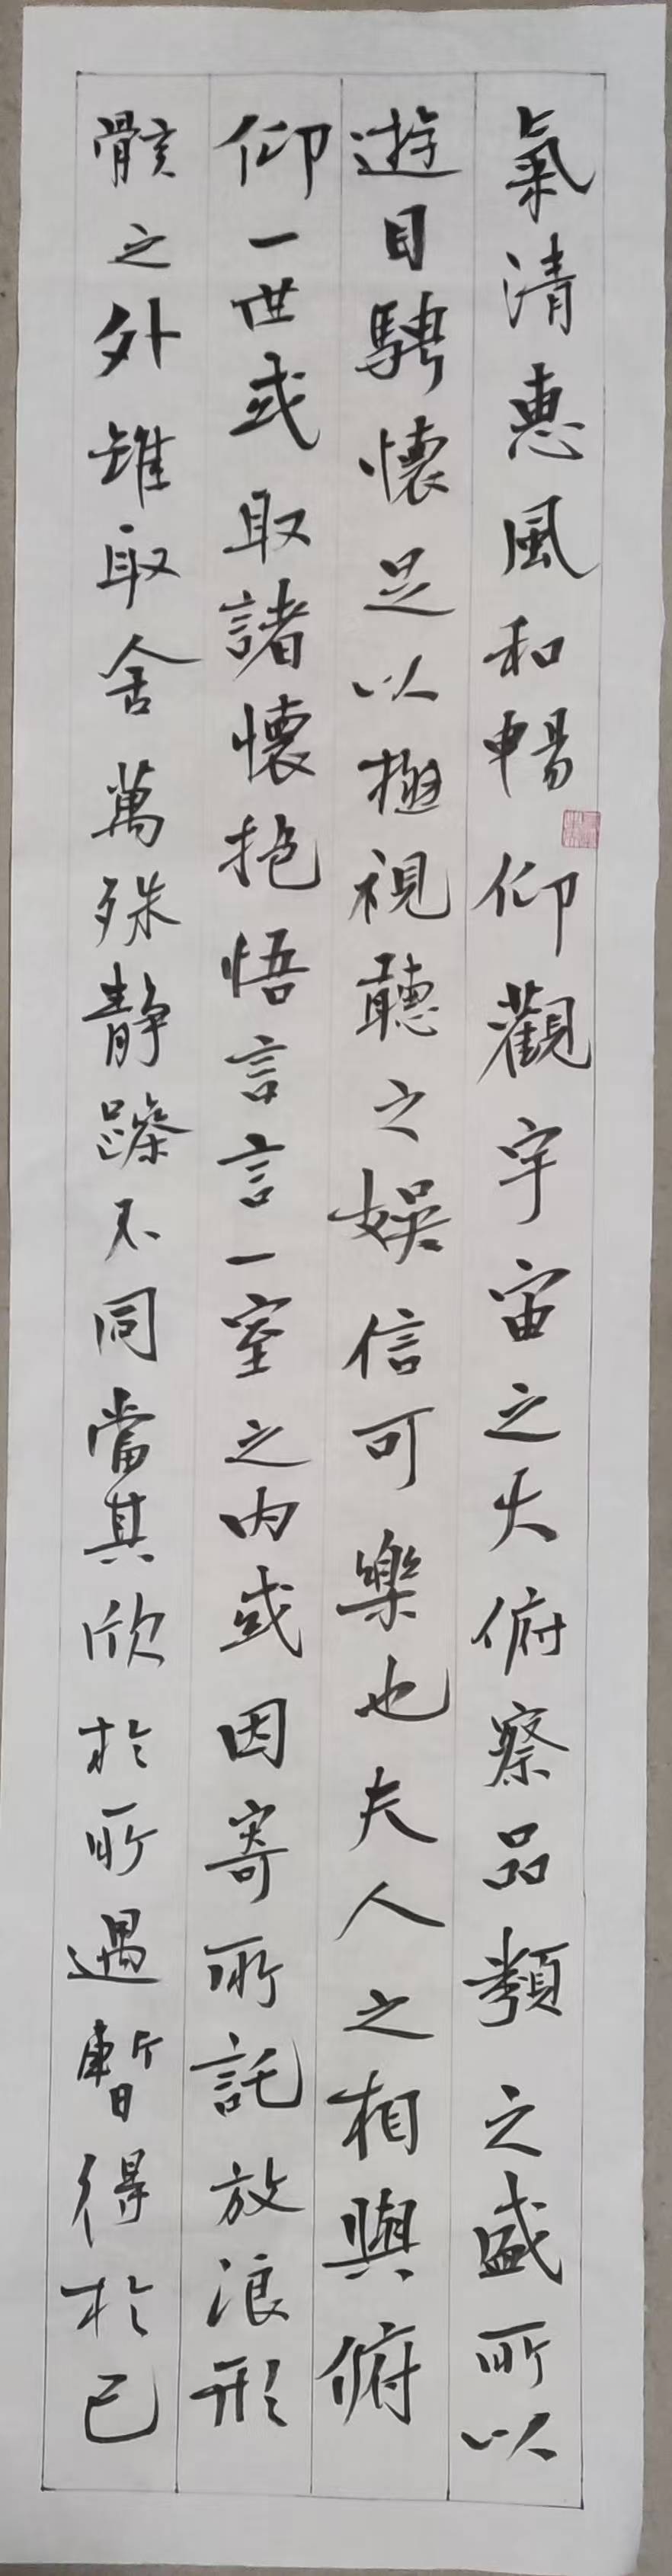 氣清惠風和暢仰觀宇宙之大俯察品類之盛所以
遊目騁懷足以極視聽之娛信可樂也夫人之相與俯
仰一世或取諸懷抱悟言言一室之內或因寄所託放浪形
骸之外雖取舍萬殊静躁不同當其欣於所遇暫得於己